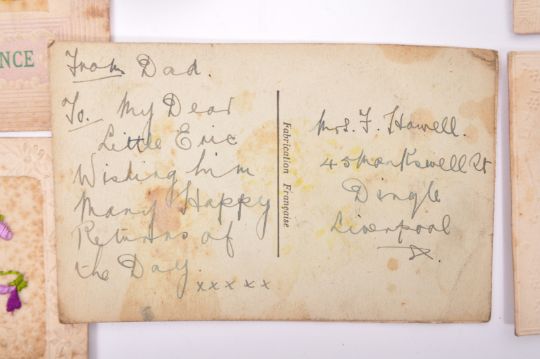 NCE
From Dad.
To. My Dear
Little Eric
Wishing him
Many Happy
Returns of
the Day.
x x x x x
Fabrication Française
Mrs. F. Howell.
45 Monkswell St
Dingle
Liverpool